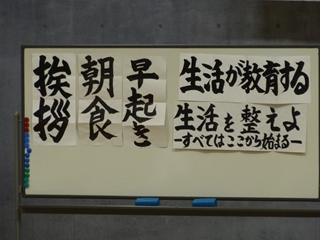 生活が教育する
生活を整えよ
ーすべてはここから始まるー
早起き
朝食
挨拶